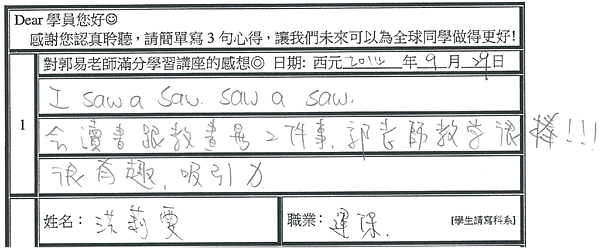 Dear 學員您好☺
感謝您認真聆聽，請簡單寫 3 句心得，讓我們未來可以為全球同學做得更好!
對郭易老師滿分學習講座的感想◎ 日期: 西元 2014 年 9 月 29 日
1
I saw a saw. saw a saw.
會讀書跟教書是2件事,郭老師教學很棒!!!
很有趣,吸引力
姓名: 洪莉雯
職業: 運保. [學生請寫科系]